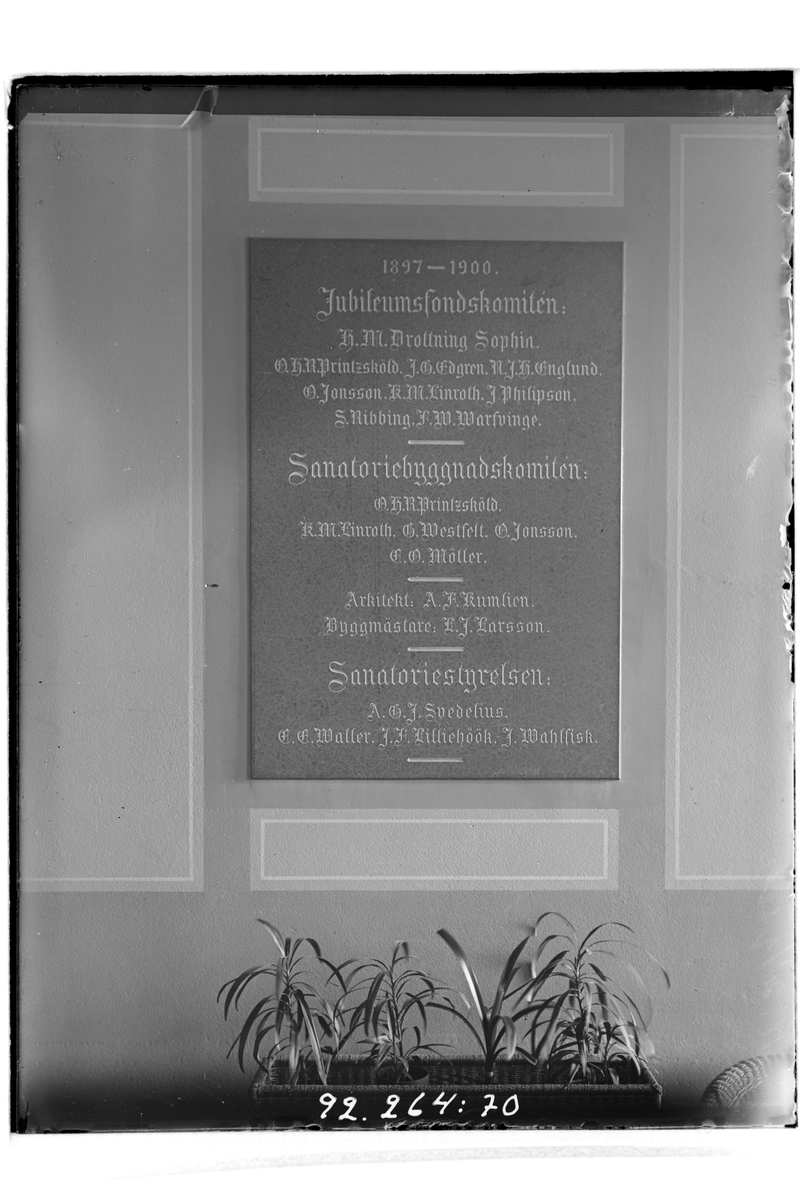 1897—1900.
Jubileumsfondskomitén:
H.M. Drottning Sophia.
O.H.R.Printzsköld. J.G.Edgren. N.J.H.Englund.
O.Jonsson. K.M.Linroth. J.Philipson.
S.Ribbing. F.W.Warfvinge.
Sanatoriebyggnadskomitén:
O.H.R.Printzsköld.
K.M.Linroth. G.Westfelt. O.Jonsson.
C.O.Möller.
Arkitekt: A.F.Kumlien.
Byggmästare: L.J.Larsson.
Sanatoriestyrelsen:
A.G.J.Svedelius.
C.E.Waller. J.F.Lilliehöök. J.Wahlfisk.
92.264:70